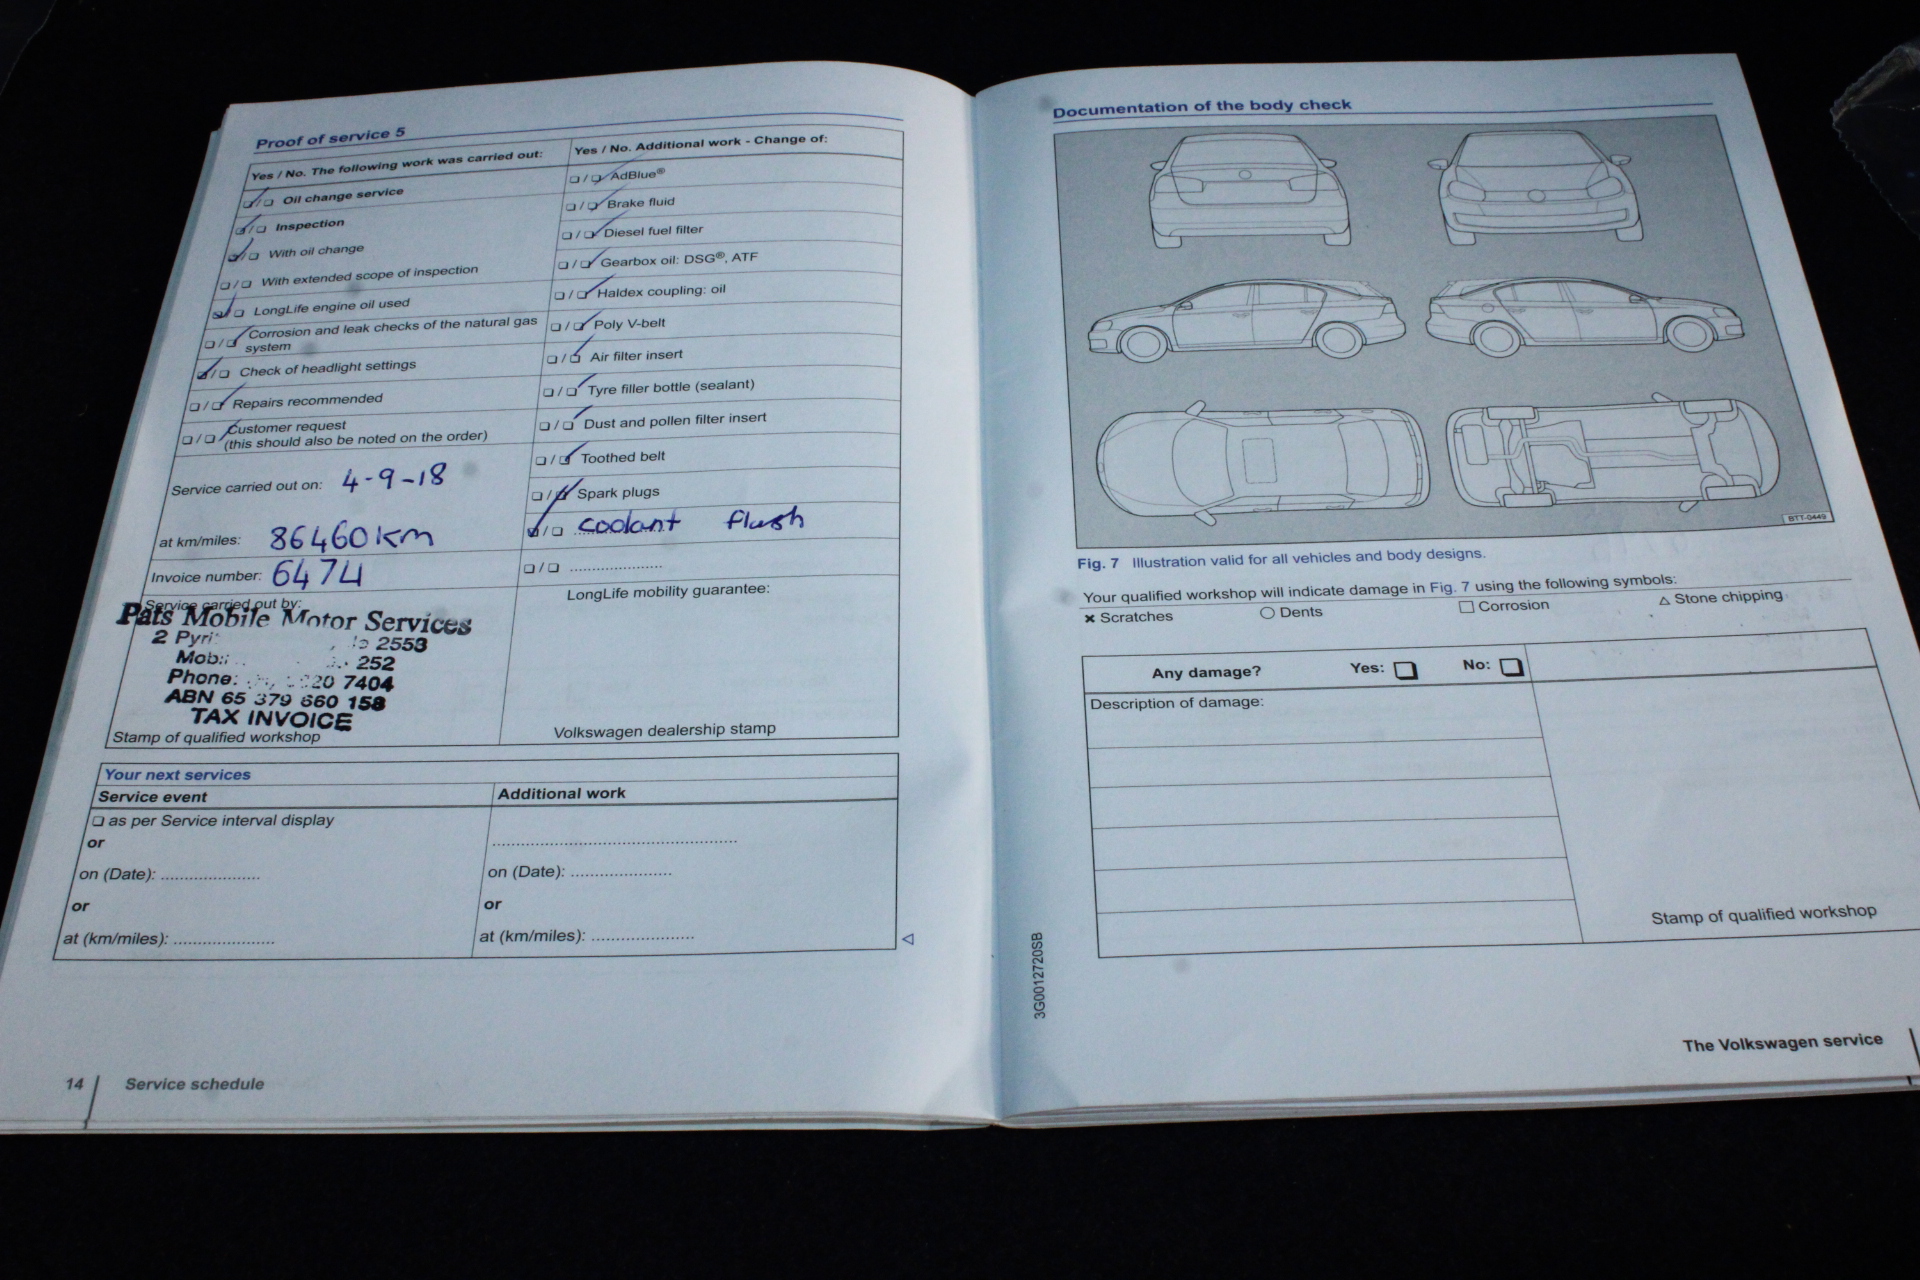 Proof of service 5
Yes / No. The following work was carried out:
❏ / ❏ Oil change service
❏ / ❏ Inspection
❏ / ❏ With oil change
❏ / ❏ With extended scope of inspection
❏ / ❏ LongLife engine oil used
❏ / ❏ Corrosion and leak checks of the natural gas
system
❏ / ❏ Check of headlight settings
❏ / ❏ Repairs recommended
❏ / ❏ Customer request
(this should also be noted on the order)
Service carried out on: 4-9-18
at km/miles: 86460km
Invoice number: 6474
Service carried out by:
Pats Mobile Motor Services
2 2553
Mob: 252
Phone: 7404
ABN 65 379 660 158
TAX INVOICE
Stamp of qualified workshop
Yes / No. Additional work - Change of:
❏ / ❏ AdBlue®
❏ / ❏ Brake fluid
❏ / ❏ Diesel fuel filter
❏ / ❏ Gearbox oil: DSG®, ATF
❏ / ❏ Haldex coupling: oil
❏ / ❏ Poly V-belt
❏ / ❏ Air filter insert
❏ / ❏ Tyre filler bottle (sealant)
❏ / ❏ Dust and pollen filter insert
❏ / ❏ Toothed belt
❏ / ❏ Spark plugs
❏ / ❏ coolant flush
❏ / ❏ ......................
LongLife mobility guarantee:
Volkswagen dealership stamp
Your next services
Service event
❏ as per Service interval display
or
on (Date): ......................
or
at (km/miles): ......................
Additional work
......................................................
on (Date): ......................
or
at (km/miles): ......................
14 Service schedule
Documentation of the body check
BTT-0449
Fig. 7 Illustration valid for all vehicles and body designs.
Your qualified workshop will indicate damage in Fig. 7 using the following symbols:
× Scratches ○ Dents □ Corrosion △ Stone chipping
Any damage? Yes: ❏ No: ❏
Description of damage:
Stamp of qualified workshop
3G0012720SB
The Volkswagen service